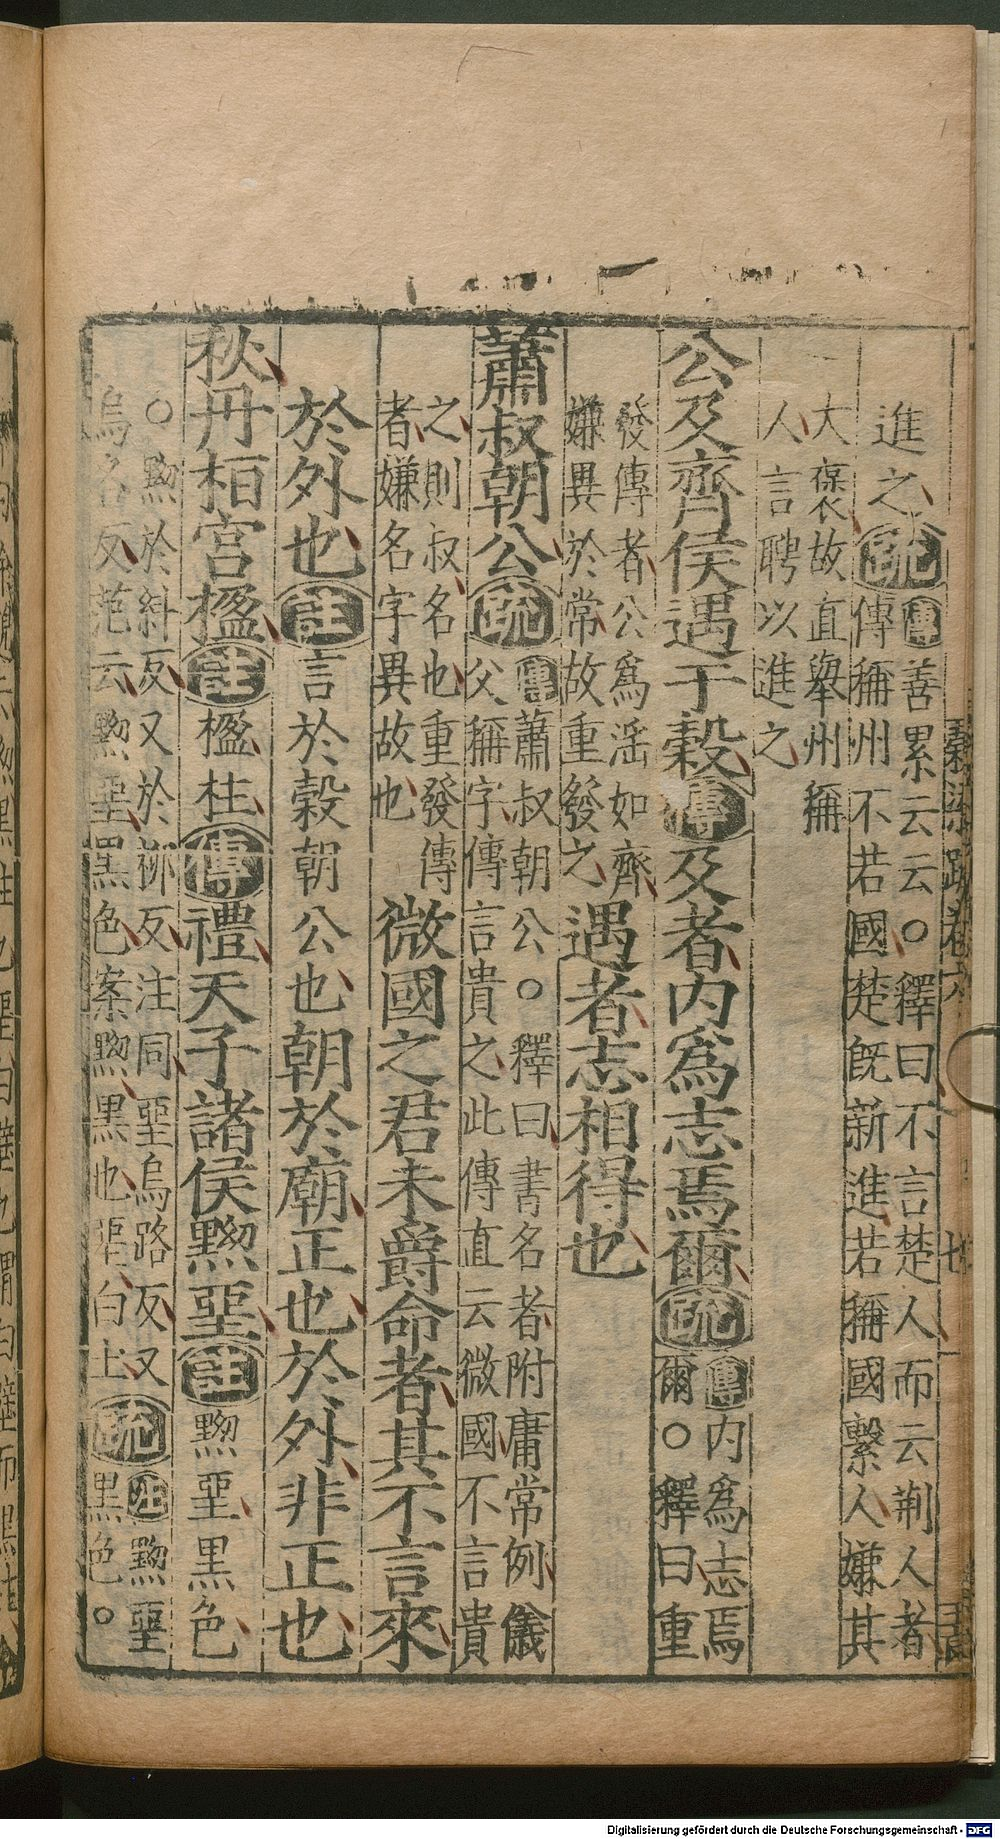 進之疏傳善累云云○釋曰不言楚人而云荆人者
傳稱州不若國楚既新進若稱國繫人嫌其
大褒故直舉州稱
人言聘以進之
公及齊侯遇于穀傳及者內爲志焉爾疏傳內爲志焉
爾○釋曰重
發傳者公爲淫如齊
嫌異於常故重發之遇者志相得也
蕭叔朝公疏傳蕭叔朝公○釋曰書名者附庸常例儀
父稱字傳言貴之此傳直云微國不言貴
之則叔名也重發傳
者嫌名字異故也微國之君未爵命者其不言來
於外也註言於穀朝公也朝於廟正也於外非正也
秋丹桓宮楹註楹柱傳禮天子諸侯黝堊註黝堊黑色
○黝於糾反又於柳反注同堊烏路反又疏注黝堊
烏各反范云黝堊黑色案黝黑也堊白土黑色○
穀梁疏卷六
七
Digitalisierung gefördert durch die Deutsche Forschungsgemeinschaft - DFG